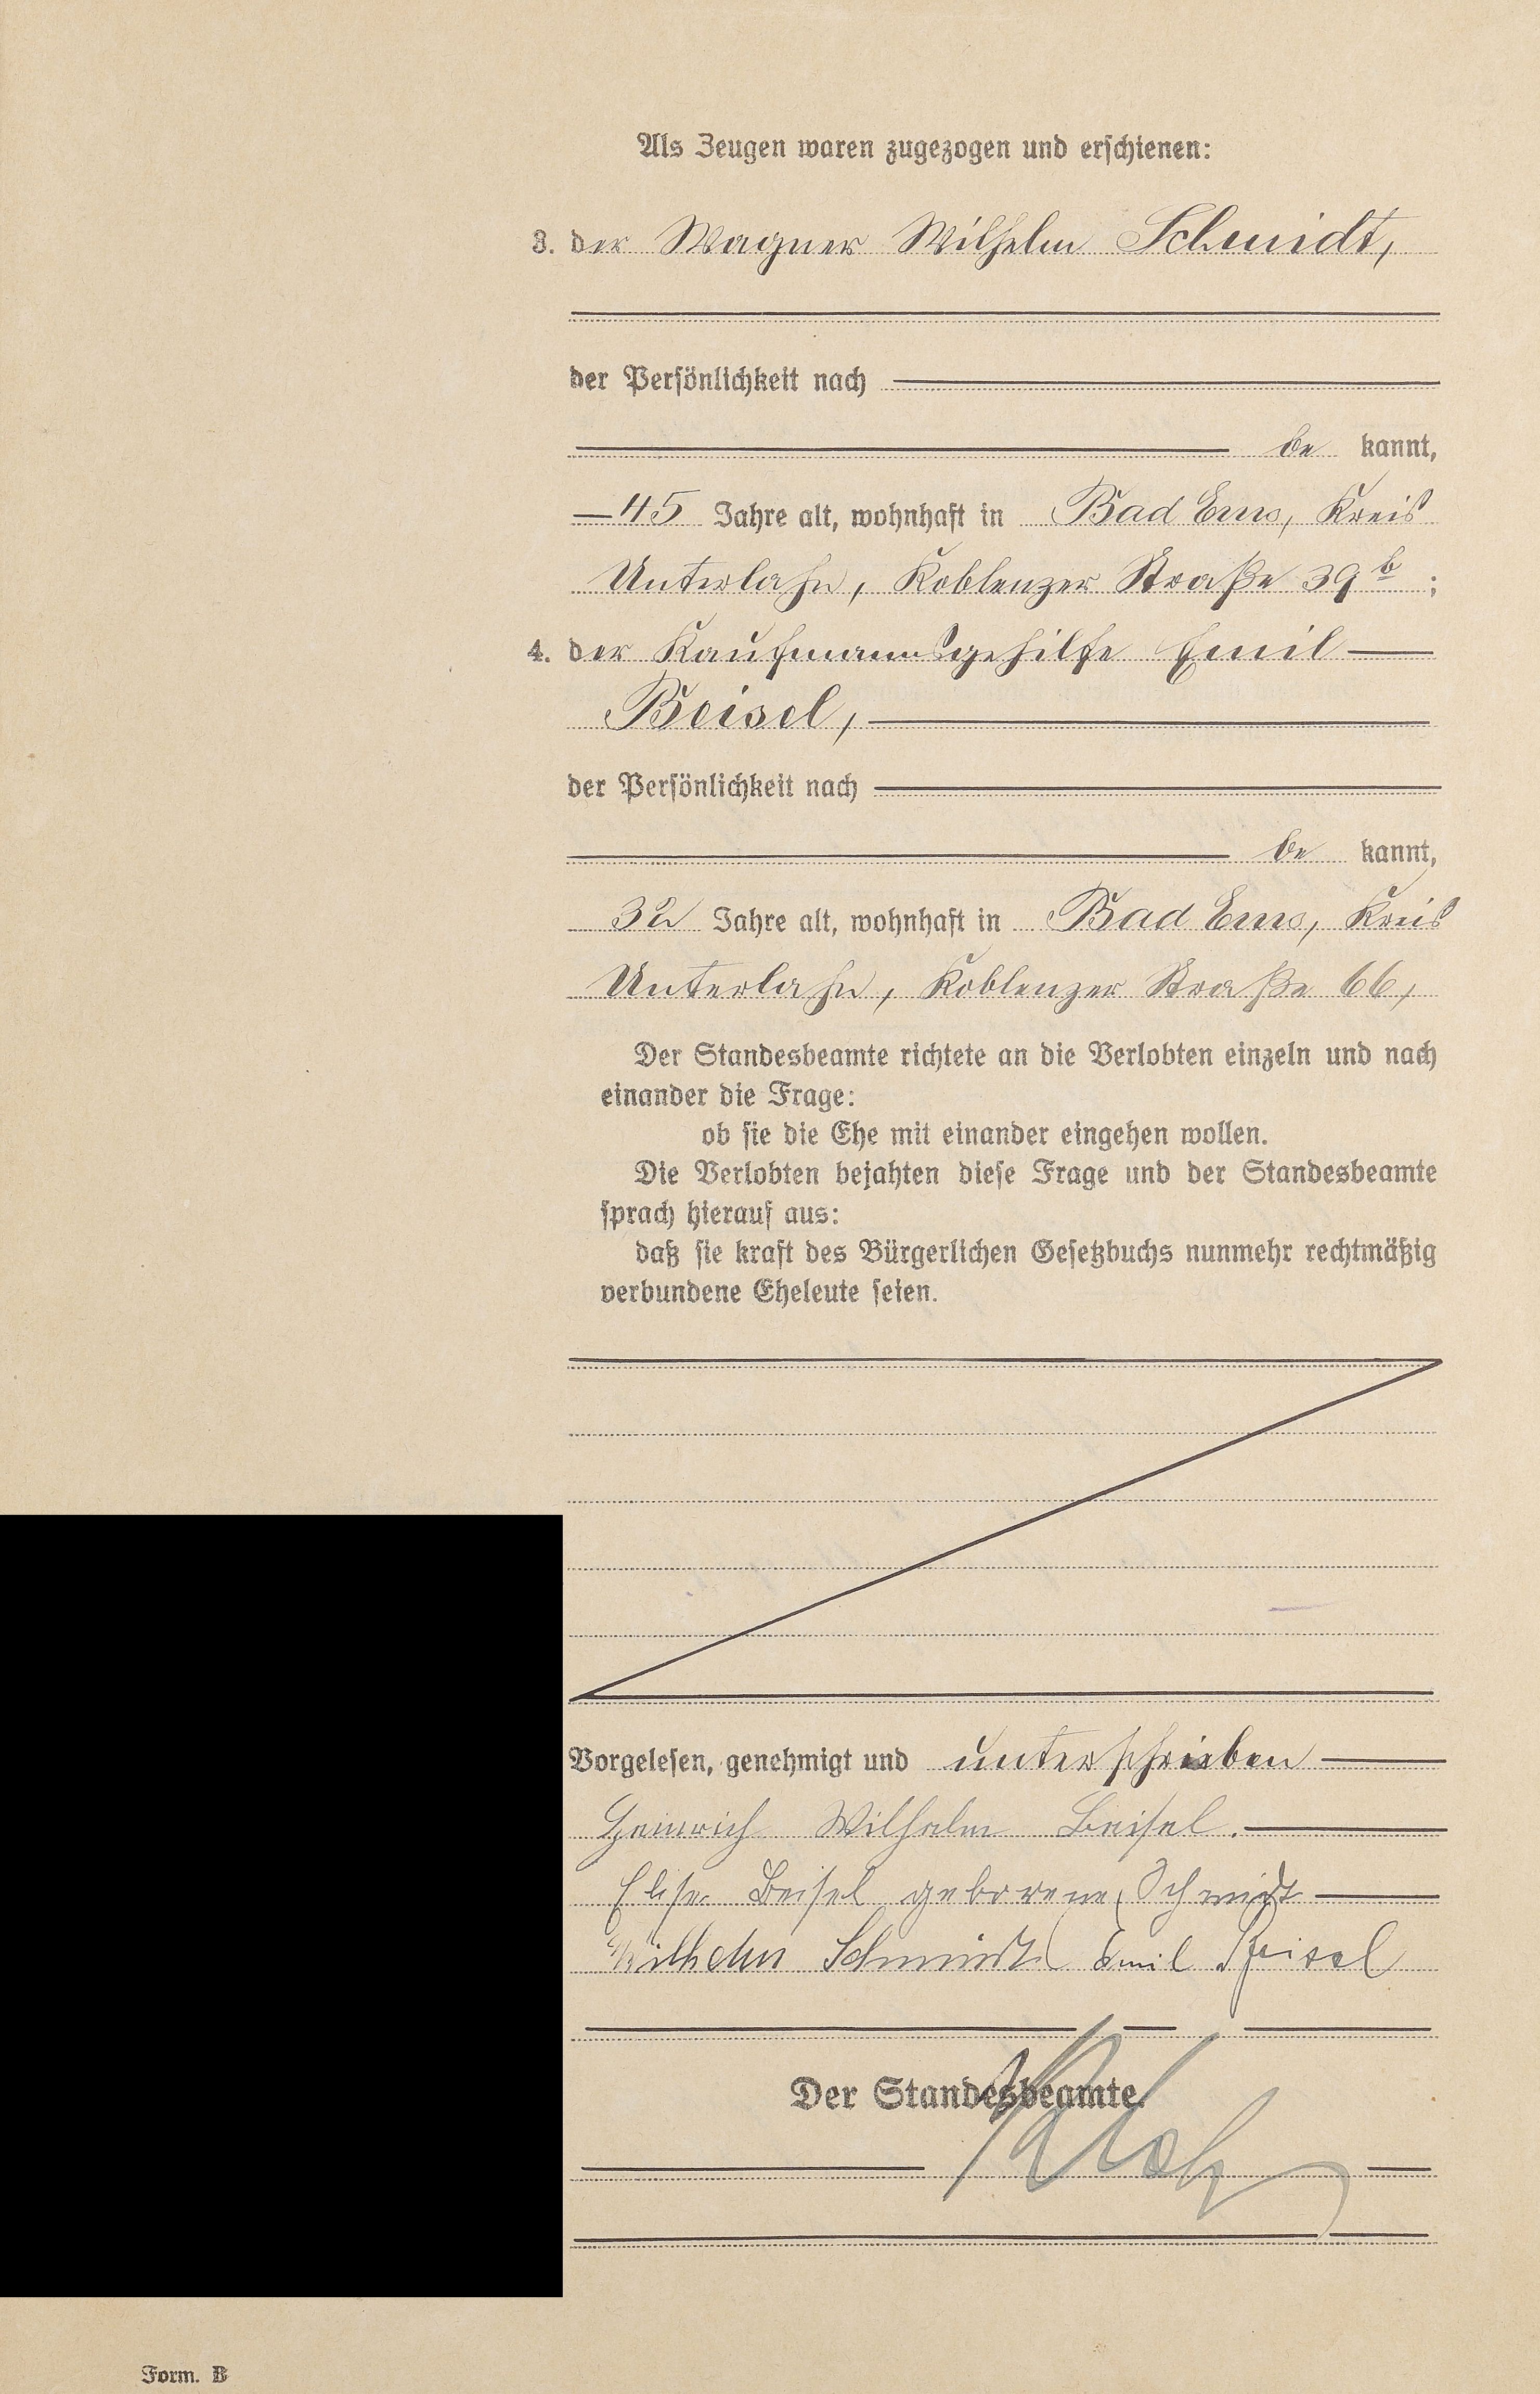 Als Zeugen waren zugezogen und erschienen:
3. der Wagner Wilhelm Schmidt,
der Persönlichkeit nach
be kannt,
45 Jahre alt, wohnhaft in Bad Ems, Kreis
Unterlahn, Koblenzer Straße 39b;
4. der Kaufmannsgehilfe Emil
Beisel,
der Persönlichkeit nach
be kannt,
32 Jahre alt, wohnhaft in Bad Ems, Kreis
Unterlahn, Koblenzer Straße 66,
Der Standesbeamte richtete an die Verlobten einzeln und nach
einander die Frage:
ob sie die Ehe mit einander eingehen wollen.
Die Verlobten bejahten diese Frage und der Standesbeamte
sprach hierauf aus:
daß sie kraft des Bürgerlichen Gesetzbuchs nunmehr rechtmäßig
verbundene Eheleute seien.
Vorgelesen, genehmigt und unterschrieben
Heinrich Wilhelm Beisel.
Elise Beisel geborene Schmidt
Wilhelm Schmidt Emil Beisel
Der Standesbeamte.
Form. B